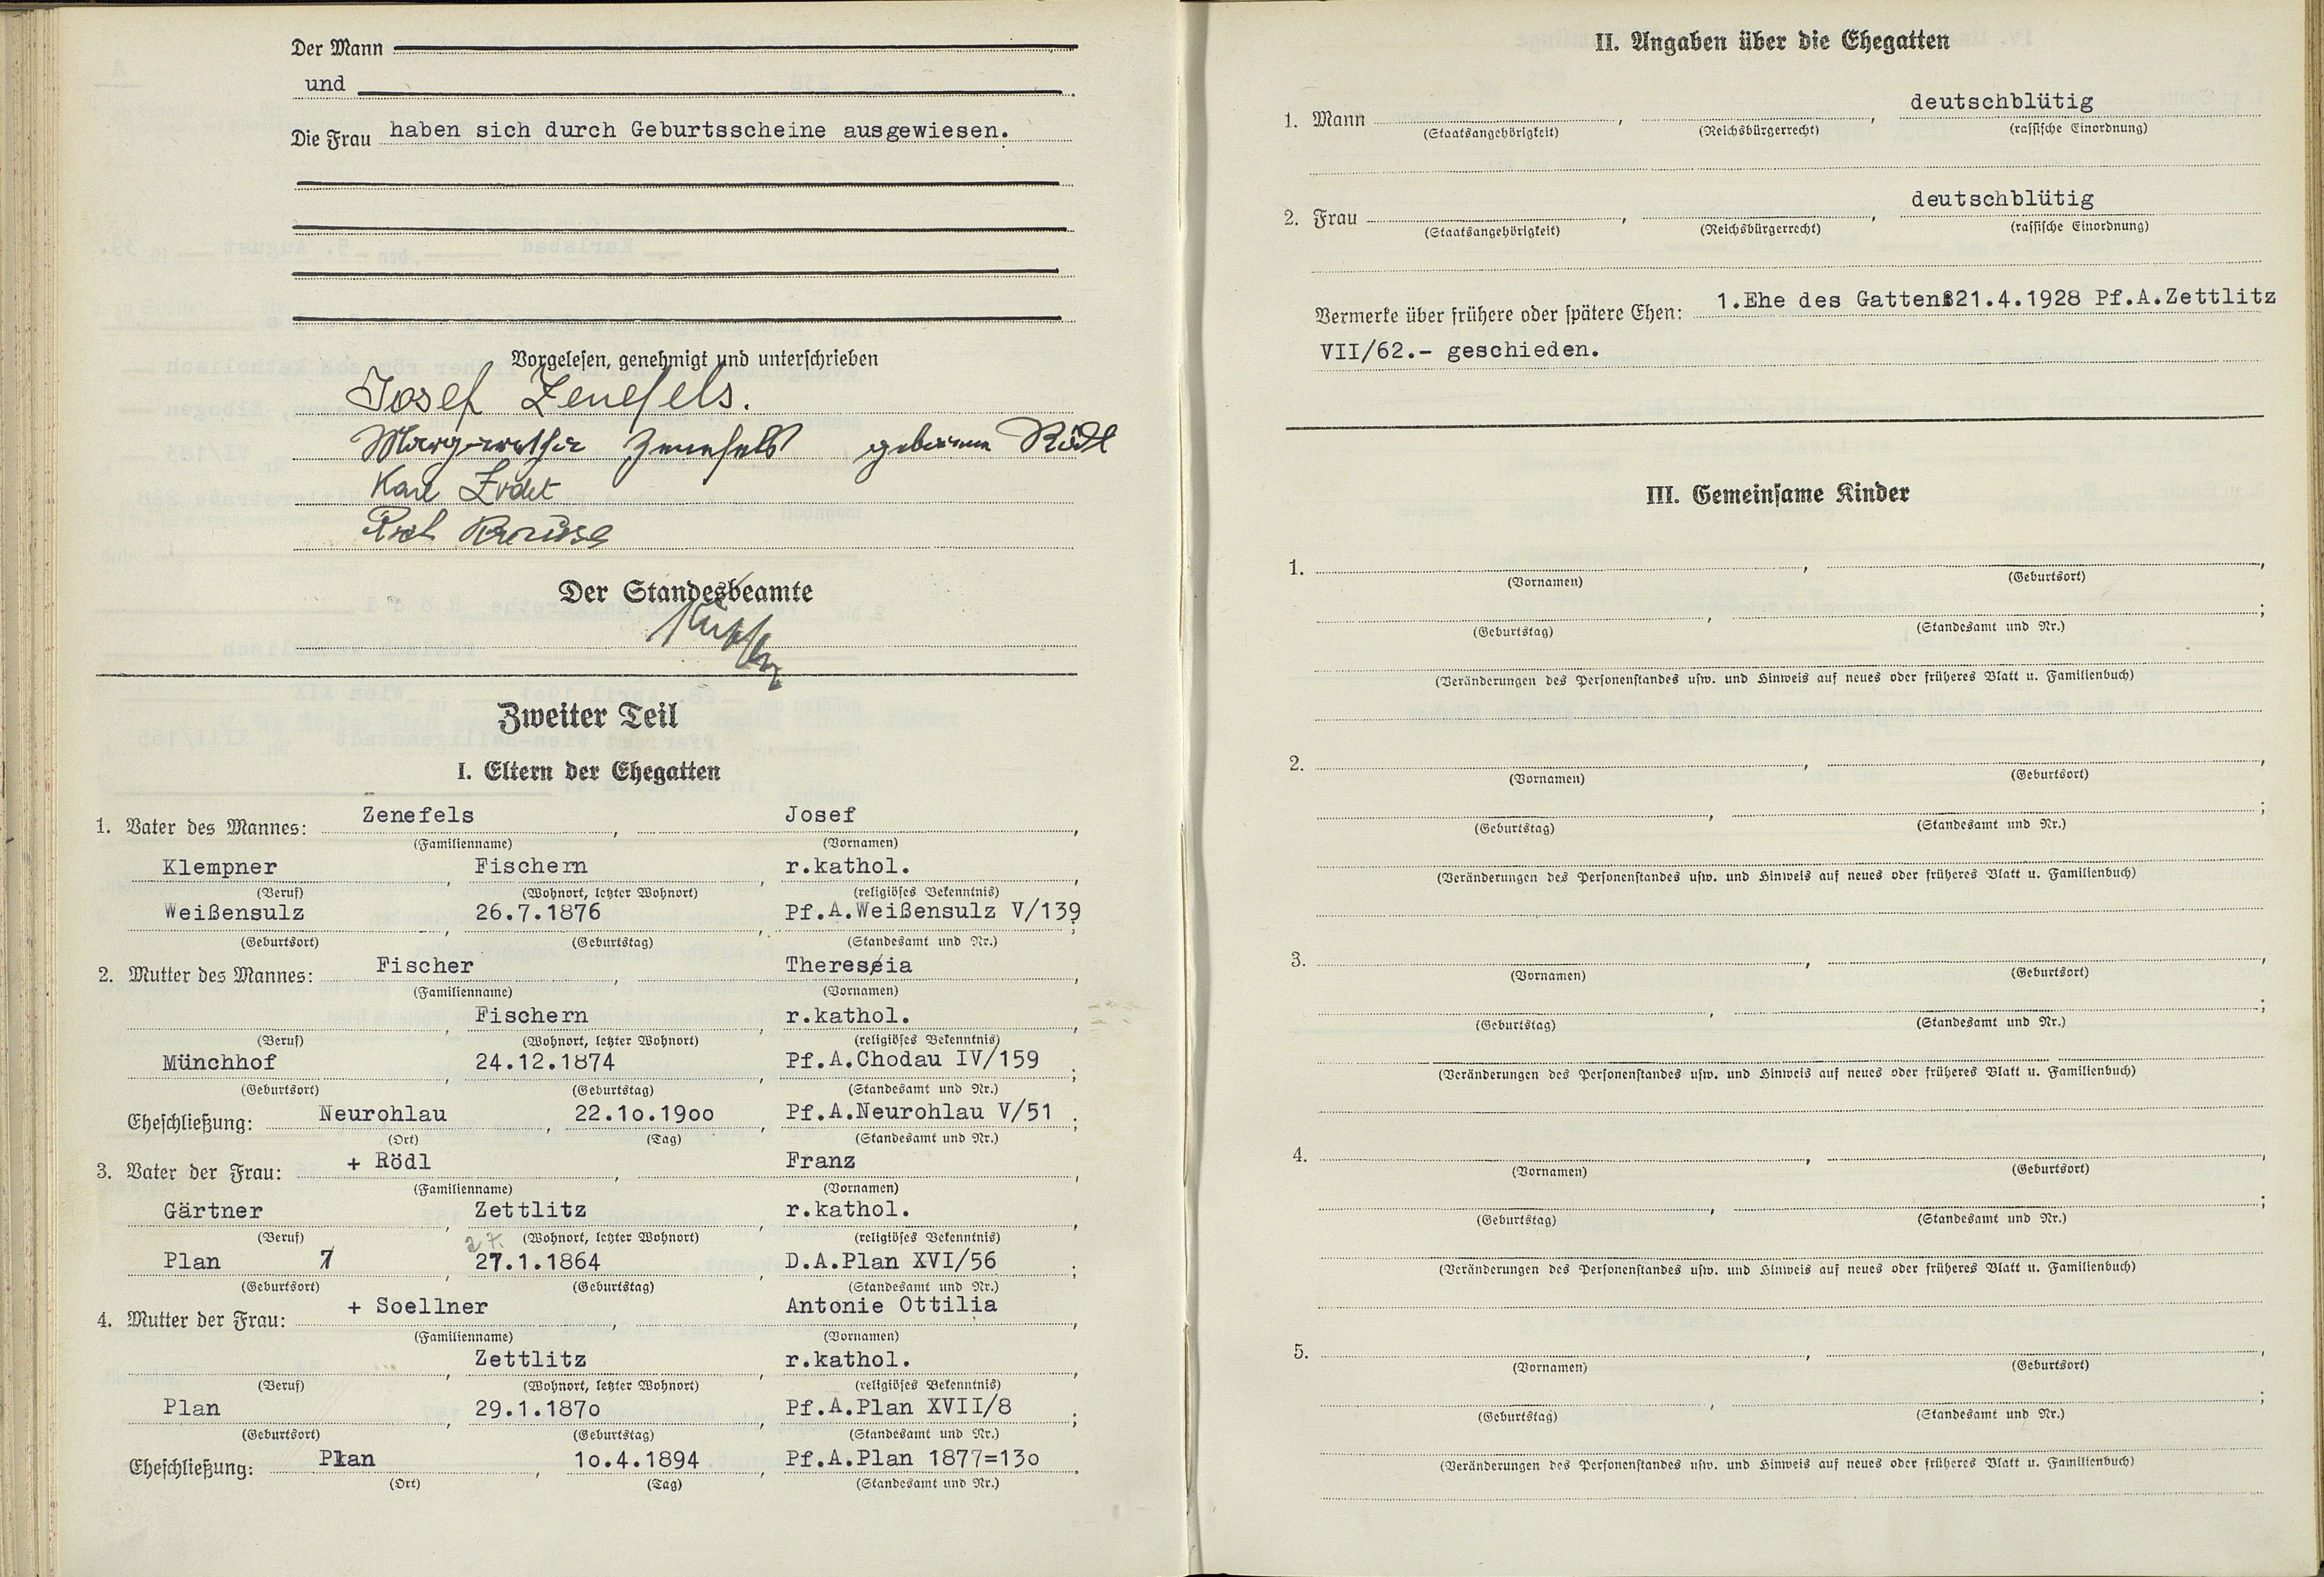 Der Mann
und
Die Frau haben sich durch Geburtsscheine ausgewiesen.
Vorgelesen, genehmigt und unterschrieben
Josef Zenefels.
Margarethe Zenefels geborene Rödl
Karl
Der Standesbeamte
Zweiter Teil
I. Eltern der Ehegatten
1. Vater des Mannes: Zenefels, Josef,
(Familienname) (Vornamen)
Klempner, Fischern, r.kathol.,
(Beruf) (Wohnort, letzter Wohnort) (religiöses Bekenntnis)
Weißensulz, 26.7.1876, Pf.A.Weißensulz V/139;
(Geburtsort) (Geburtstag) (Standesamt und Nr.)
2. Mutter des Mannes: Fischer, Theresia,
(Familienname) (Vornamen)
, Fischern, r.kathol.,
(Beruf) (Wohnort, letzter Wohnort) (religiöses Bekenntnis)
Münchhof, 24.12.1874, Pf.A.Chodau IV/159;
(Geburtsort) (Geburtstag) (Standesamt und Nr.)
Eheschließung: Neurohlau, 22.1o.19oo, Pf.A.Neurohlau V/51;
(Ort) (Tag) (Standesamt und Nr.)
3. Vater der Frau: + Rödl, Franz,
(Familienname) (Vornamen)
Gärtner, Zettlitz, r.kathol.,
(Beruf) 27. (Wohnort, letzter Wohnort) (religiöses Bekenntnis)
Plan 7, 27.1.1864, D.A.Plan XVI/56;
(Geburtsort) (Geburtstag) (Standesamt und Nr.)
4. Mutter der Frau: + Soellner, Antonie Ottilia,
(Familienname) (Vornamen)
, Zettlitz, r.kathol.,
(Beruf) (Wohnort, letzter Wohnort) (religiöses Bekenntnis)
Plan, 29.1.187o, Pf.A.Plan XVII/8;
(Geburtsort) (Geburtstag) (Standesamt und Nr.)
Eheschließung: Plan, 1o.4.1894, Pf.A.Plan 1877=13o.
(Ort) (Tag) (Standesamt und Nr.)
II. Angaben über die Ehegatten
1. Mann , , deutschblütig
(Staatsangehörigkeit) (Reichsbürgerrecht) (rassische Einordnung)
2. Frau , , deutschblütig
(Staatsangehörigkeit) (Reichsbürgerrecht) (rassische Einordnung)
Vermerke über frühere oder spätere Ehen: 1.Ehe des Gattens21.4.1928 Pf.A.Zettlitz
VII/62.- geschieden.
III. Gemeinsame Kinder
1. , ,
(Vornamen) (Geburtsort)
, ;
(Geburtstag) (Standesamt und Nr.)
(Veränderungen des Personenstandes usw. und Hinweis auf neues oder früheres Blatt u. Familienbuch)
2. , ,
(Vornamen) (Geburtsort)
, ;
(Geburtstag) (Standesamt und Nr.)
(Veränderungen des Personenstandes usw. und Hinweis auf neues oder früheres Blatt u. Familienbuch)
3. , ,
(Vornamen) (Geburtsort)
, ;
(Geburtstag) (Standesamt und Nr.)
(Veränderungen des Personenstandes usw. und Hinweis auf neues oder früheres Blatt u. Familienbuch)
4. , ,
(Vornamen) (Geburtsort)
, ;
(Geburtstag) (Standesamt und Nr.)
(Veränderungen des Personenstandes usw. und Hinweis auf neues oder früheres Blatt u. Familienbuch)
5. , ,
(Vornamen) (Geburtsort)
, ;
(Geburtstag) (Standesamt und Nr.)
(Veränderungen des Personenstandes usw. und Hinweis auf neues oder früheres Blatt u. Familienbuch)